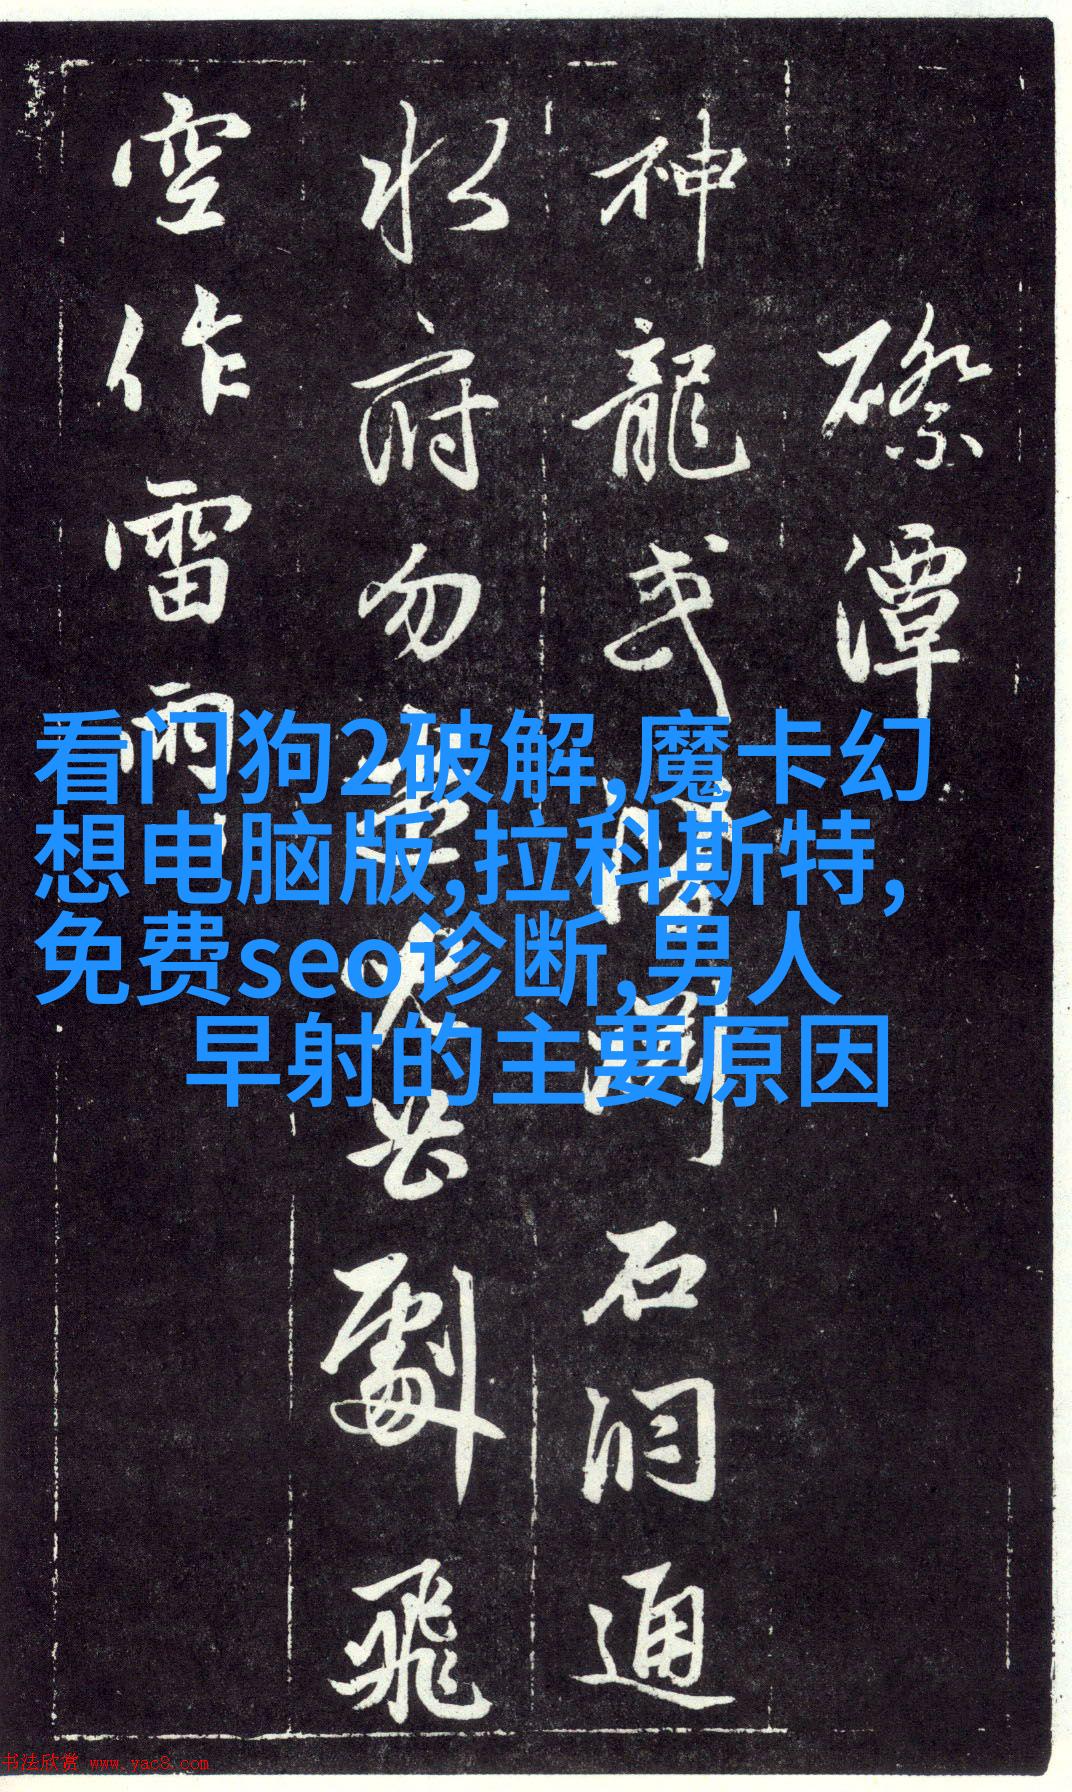 磜潭
神龍或石洞通
水府勿飛
空作雷雨
看门狗2破解,魔卡幻
想电脑版,拉科斯特,
免费seo诊断,男人
早射的主要原因
书法欣赏 www.yac8.com